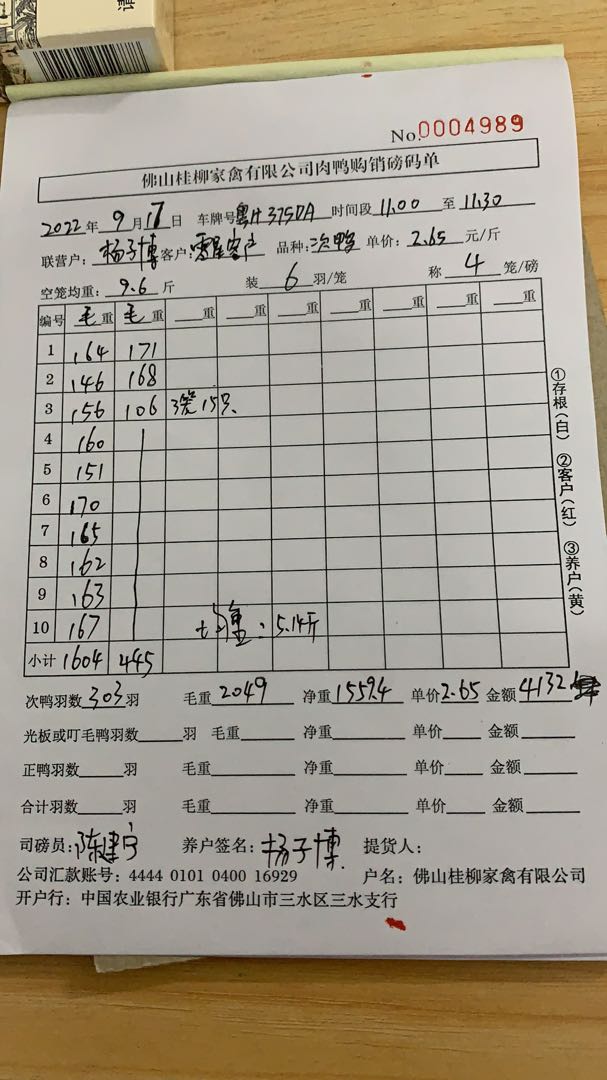 No.0004989
佛山桂柳家禽有限公司肉鸭购销磅码单
2022年9月17日 车牌号 粤H375DA 时间段 11.00 至 11.30
联营户：杨子博 客户：零星客户 品种：次鸭 单价：2.65 元/斤
空笼均重：9.6 斤 装 6 羽/笼 称 4 笼/磅
编号 毛重 毛重 重 重 重 重 重 重 重
1 164 171
2 146 168
3 156 106 3笼15只
4 160
5 151
6 170
7 165
8 162
9 163
10 167 均重：5.14斤
小计 1604 445
次鸭羽数 303 羽 毛重 2049 净重 1559.4 单价 2.65 金额 4132
光板或叮毛鸭羽数 羽 毛重 净重 单价 金额
正鸭羽数 羽 毛重 净重 单价 金额
合计羽数 羽 毛重 净重 单价 金额
司磅员：陈建宁 养户签名：杨子博 提货人：
公司汇款账号：4444 0101 0400 16929 户名：佛山桂柳家禽有限公司
开户行：中国农业银行广东省佛山市三水区三水支行
①存根（白） ②客户（红） ③养户（黄）